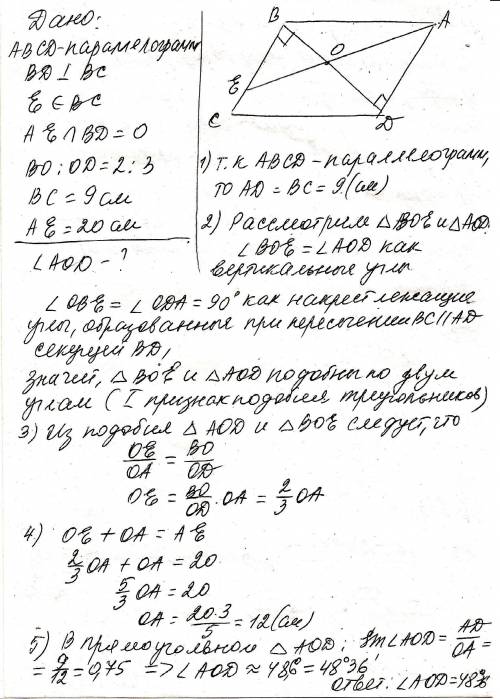 Дано:
ABCD-параллелограмм
BD ⊥ BC
E ∈ BC
AE ∩ BD = O
BO : OD = 2 : 3
BC = 9 см
AE = 20 см
∠AOD - ?
B
A
O
E
C
D
1) Т.к ABCD - параллелограмм,
то AD = BC = 9 (см)
2) Рассмотрим △BOE и △AOD.
∠BOE = ∠AOD как
вертикальные углы
∠OBE = ∠ODA = 90° как накрест лежащие
углы, образованные при пересечении BC || AD
секущей BD,
значит, △BOE и △AOD подобны по двум
углам (I признак подобия треугольников)
3) Из подобия △AOD и △BOE следует, что
OE/OA = BO/OD
OE = BO/OD · OA = 2/3 OA
4) OE + OA = AE
2/3 OA + OA = 20
5/3 OA = 20
OA = 20·3/5 = 12 (см)
5) В прямоугольном △AOD: sin∠AOD = AD/OA =
= 9/12 = 0,75 => ∠AOD ≈ 48,6° = 48°36'
Ответ: ∠AOD = 48°36'